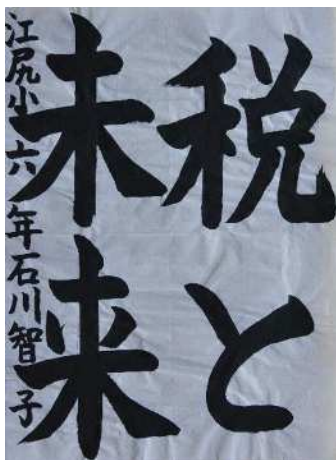 税と
未来
江尻小六年石川智子